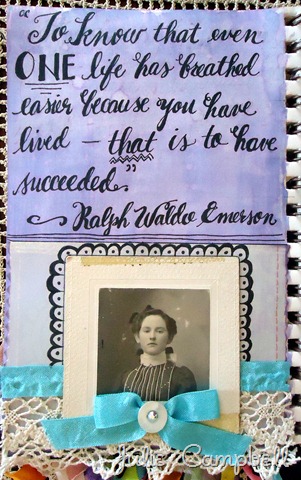 “To know that even
ONE life has breathed
easier because you have
lived – that is to have
succeeded.”
Ralph Waldo Emerson
Julie Campbell